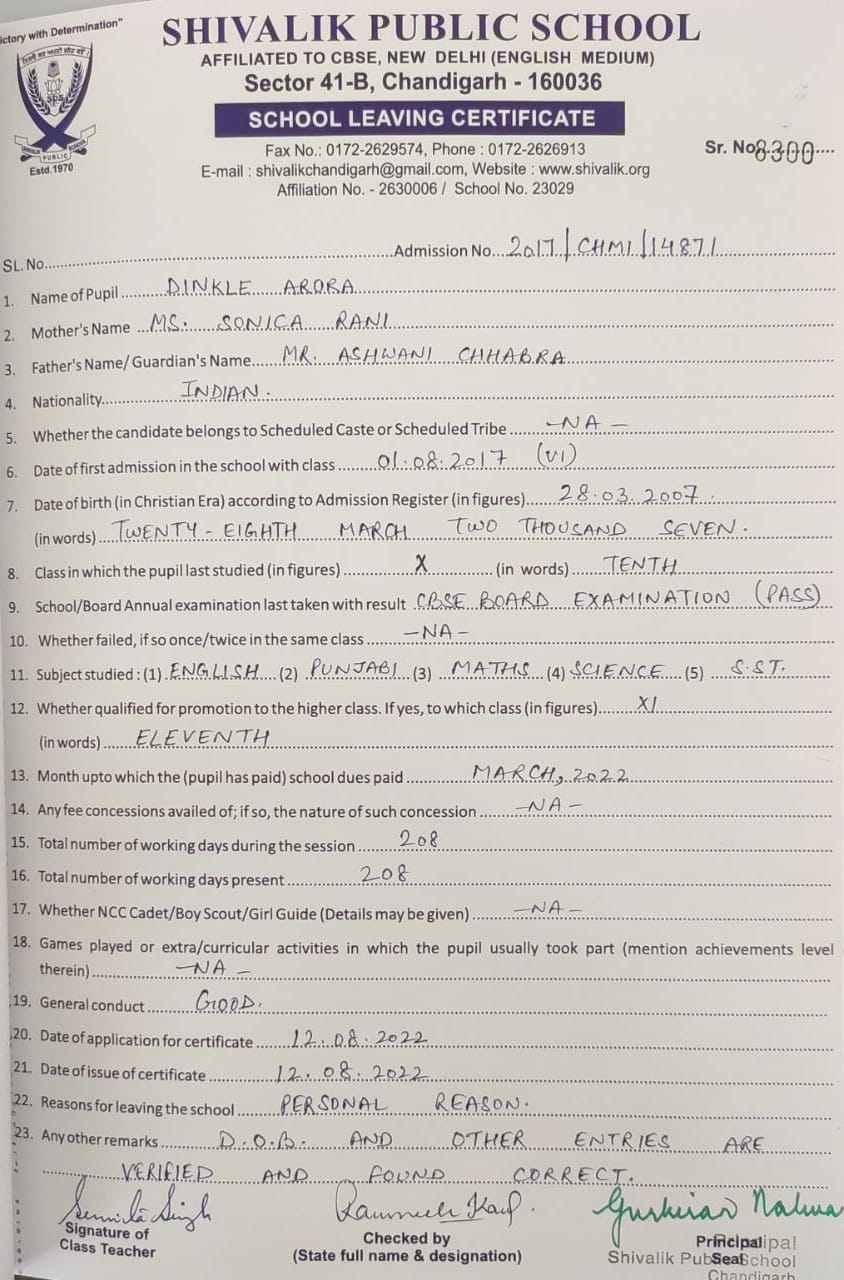 ictory with Determination"
SHIVALIK PUBLIC SCHOOL
AFFILIATED TO CBSE, NEW DELHI (ENGLISH MEDIUM)
Sector 41-B, Chandigarh - 160036
SCHOOL LEAVING CERTIFICATE
SPS
SHIVALIK PUBLIC SCHOOL
Estd.1970
Fax No.: 0172-2629574, Phone : 0172-2626913
Sr. No 8300....
E-mail : shivalikchandigarh@gmail.com, Website : www.shivalik.org
Affiliation No. - 2630006 / School No. 23029
SL. No. Admission No. 2017/CHMI/14871
1. Name of Pupil DINKLE ARORA
2. Mother's Name MS. SONICA RANI
3. Father's Name/ Guardian's Name MR. ASHWANI CHHABRA
4. Nationality INDIAN.
5. Whether the candidate belongs to Scheduled Caste or Scheduled Tribe -NA-
6. Date of first admission in the school with class 01.08.2017 (VI)
7. Date of birth (in Christian Era) according to Admission Register (in figures) 28.03.2007.
(in words) TWENTY-EIGHTH MARCH TWO THOUSAND SEVEN.
8. Class in which the pupil last studied (in figures) X (in words) TENTH
9. School/Board Annual examination last taken with result CBSE BOARD EXAMINATION (PASS)
10. Whether failed, if so once/twice in the same class -NA-
11. Subject studied : (1) ENGLISH (2) PUNJABI (3) MATHS (4) SCIENCE (5) S.ST.
12. Whether qualified for promotion to the higher class. If yes, to which class (in figures) XI
(in words) ELEVENTH
13. Month upto which the (pupil has paid) school dues paid MARCH, 2022
14. Any fee concessions availed of; if so, the nature of such concession -NA-
15. Total number of working days during the session 208
16. Total number of working days present 208
17. Whether NCC Cadet/Boy Scout/Girl Guide (Details may be given) -NA-
18. Games played or extra/curricular activities in which the pupil usually took part (mention achievements level
therein) -NA-
19. General conduct GOOD.
20. Date of application for certificate 12.08.2022
21. Date of issue of certificate 12.08.2022
22. Reasons for leaving the school PERSONAL REASON.
23. Any other remarks D.O.B. AND OTHER ENTRIES ARE
VERIFIED AND FOUND CORRECT.
Singh Kaur. Gurkiran Nalwa
Signature of Class Teacher
Checked by
(State full name & designation)
Principal
Seal
Principal
Shivalik Public School
Chandigarh